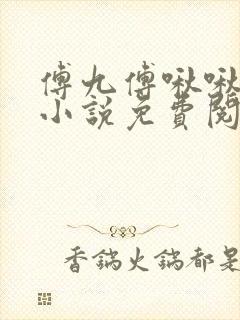 傅九傅啾啾
小説免費閱
香鍋火鍋都是